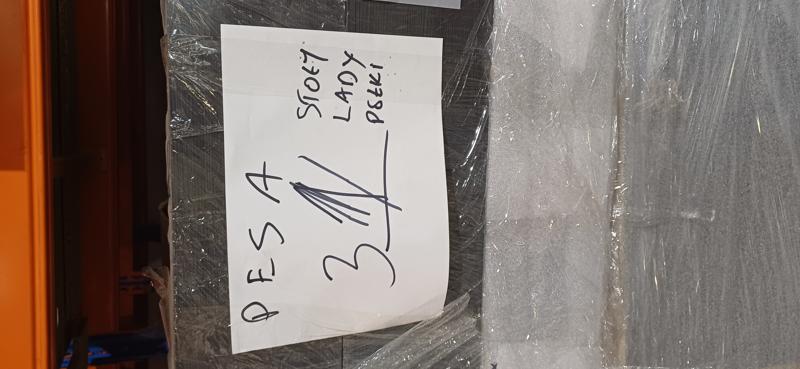 PESA
3
STOŁY
LADY
PÓŁKI